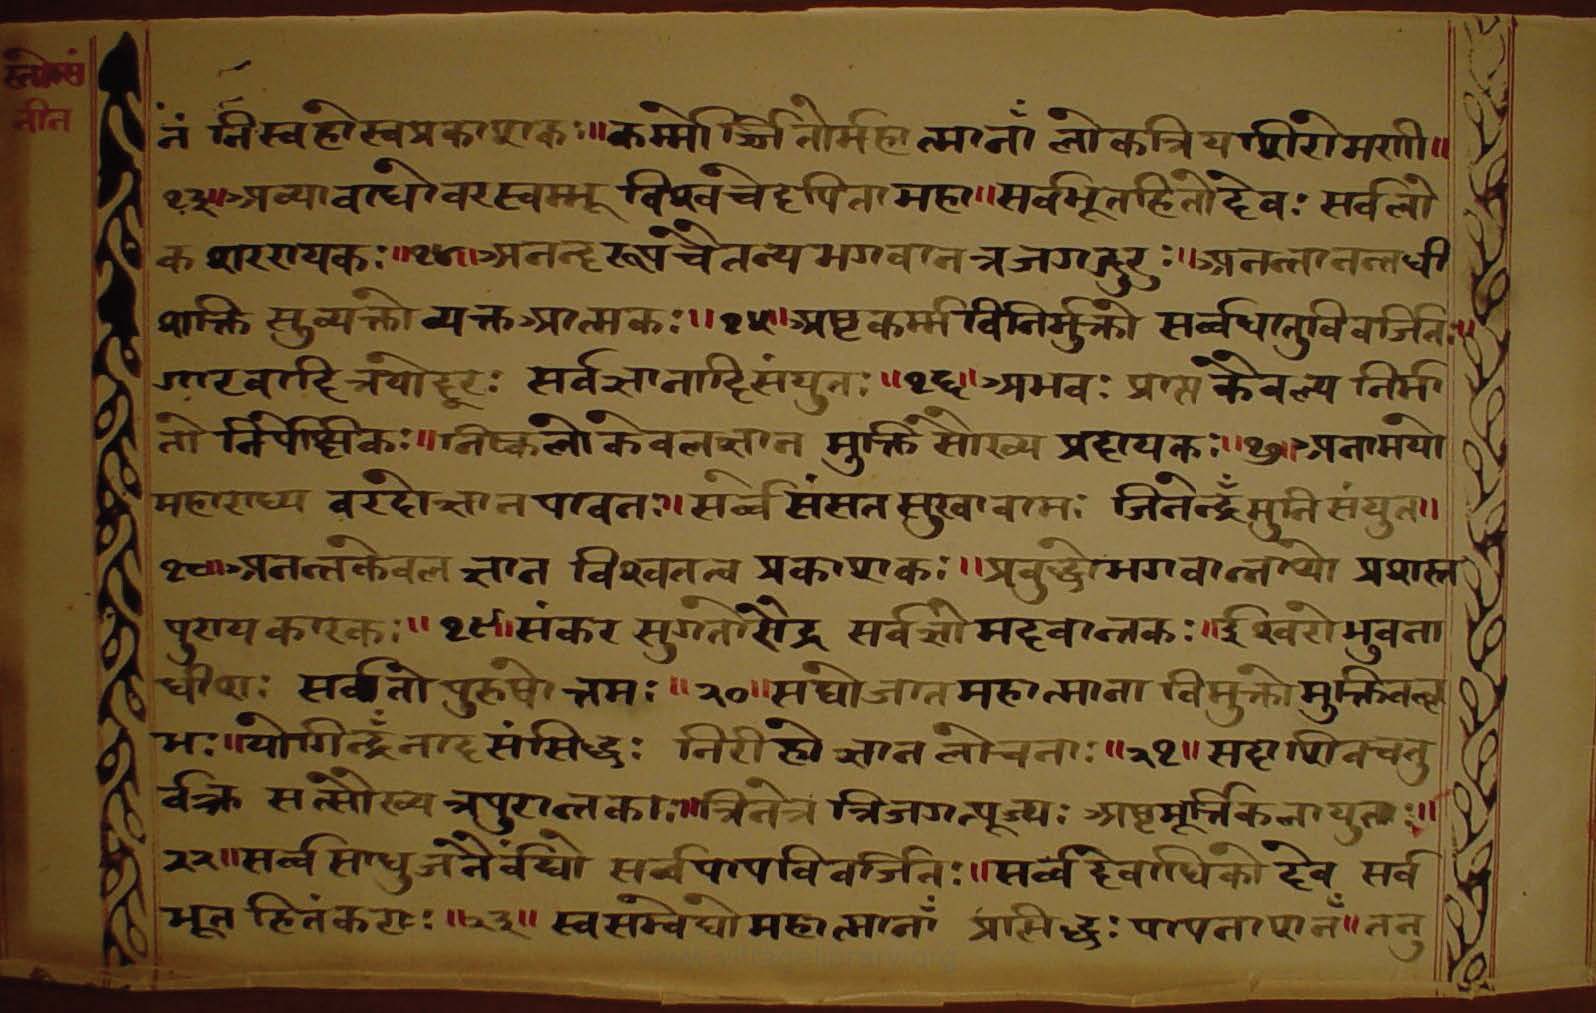 स्तोत्रसं
नीत
नं निस्वहोस्वप्रकाशकः॥कर्म्मोर्ज्जिनोर्महात्मानाँ लोकत्रियशिरोमणी॥
१३॥अव्यावाधोवरस्वम्भू विश्वंचेदपितामहा॥सर्वभूतहितोदेवः सर्वलो
कशररायकः॥१४॥अनन्दरूपंचैतन्यभगवानत्रजगद्गुरुः॥अनन्तानन्तधी
शक्ति सुव्यक्तोव्यक्तआत्मकः॥१५॥अष्टकर्म्मविनिर्मुक्तो सर्व्वधातुविवर्जितः॥
गारवादित्रयोदूरः सर्वज्ञानादिसंयुतः॥१६॥अभवः प्राप्तकैवल्य निर्मा
नो निर्पेक्षिकः॥निष्कलोकेवलज्ञान मुक्तिसौख्य प्रदायकः॥१७॥अनामयो
महाराध्य वरदोज्ञानपावनः॥सर्व्वेसंसतसुखावामः जिनेन्द्रँमुनिसंयुत॥
१८॥अनन्तकेवलज्ञान विश्वतत्वप्रकाशकः॥प्रवुद्धोभगवान्नाथो प्रशस्त
पुरायकारकः॥१९॥संकरसुगतोरौद्र सर्वज्ञोमदवान्तकः॥ईश्वरोभुवना
धीशः सर्वज्ञतोपुरुषोत्तमः॥२०॥सघोजातमहात्माना विमुक्तोमुक्तिवल्ल
भः॥योगिन्द्रँनादसंसिद्धः निरीहोज्ञानलोचनाः॥२१॥सदाशिवचतु
र्वक्त्र सत्सौख्यत्रपुरान्तका॥त्रिनेत्र त्रिजगत्पूज्यः अष्टमूर्त्तिकलायुतः॥
२२॥सर्व्वसाधुजनैर्वंघो सर्व्वपापविवर्जितः॥सर्व्वदेवाधिकोदेव सर्व
भूत हितंकराः॥२३॥ स्वसम्वेघोमहात्मानाँ प्रासिद्धः पापनाशनँ॥तनु